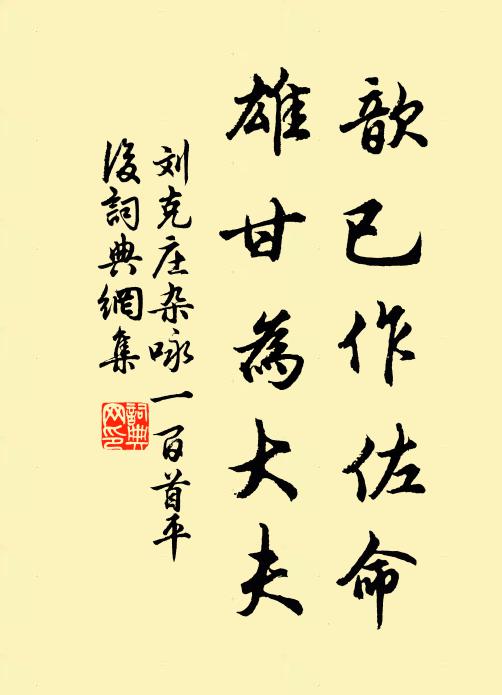 歆已作佐命
雄甘為大夫
刘克庄杂咏一百首平
後詞典網集
詞典网印